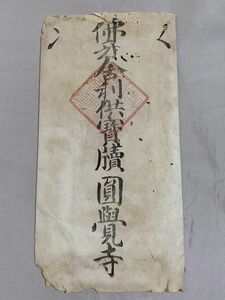 佛牙舍利供寶牘 圓覺寺